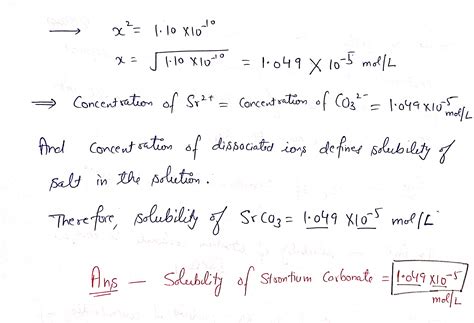 ⟶ x² = 1.10 x10⁻¹⁰
x = √1.10 x10⁻¹⁰ = 1.049 x 10⁻⁵ mol/L
⟹ Concentration of Sr²⁺ = Concentration of CO₃²⁻ = 1.049x10⁻⁵ mol/L
And Concentration of dissociated ions defines solubility of
salt in the solution.
Therefore, solubility of SrCO₃ = 1.049 x10⁻⁵ mol/L
Ans — Solubility of Strontium Carbonate = 1.049 x10⁻⁵ mol/L